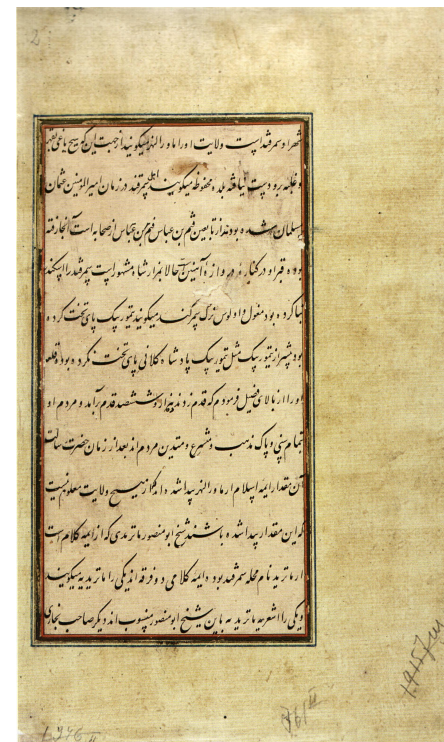 شهر او سمرقند است ولایت او را ماورالنهر میگویند از جهت این که هیچ یاغی بقهر
و غلبه برو دست نیافته بلده محفوظه میگویند اهل سمرقند در زمان امیرالمؤمنین عثمان
مسلمان شده بودند از تابعین قثم بن عباس قثم بن عباس از صحابه است آنجا رفته
بوده قبر او در کناره دروازه آهنین است حالا بمزار شاه مشهور است سمرقند را اسکندر
بنا کرده بود مغول و اولوس ترک سمرکند میگویند تیمور بیک پای تخت کرده
بود پیشتر از تیمور بیک مثل تیمور بیک پادشاه کلانی پای تخت نکرده بوده قلعه
او را از بالای فصیل فرمودم که قدم زدند ده هزار و ششصد قدم برآمد و مردم او
تمام سنی و پاک مذهب و متشرع و متدین مردم اند بعد از زمان حضرت رسالت
آن مقدار ایمه اسلام از ماورالنهر پیدا شده اند که از هیچ ولایت معلوم نیست
که این مقدار پیدا شده باشند شیخ ابو منصور ماتریدی که از ایمه کلام است
از ماترید نام محله سمرقند بوده ایمه کلامی دو فرقه اند یکی را ماتریدیه میگویند
و یکی را اشعریه ماتریدیه باین شیخ ابو منصور منسوب اند دیگر صاحب بخاری
2